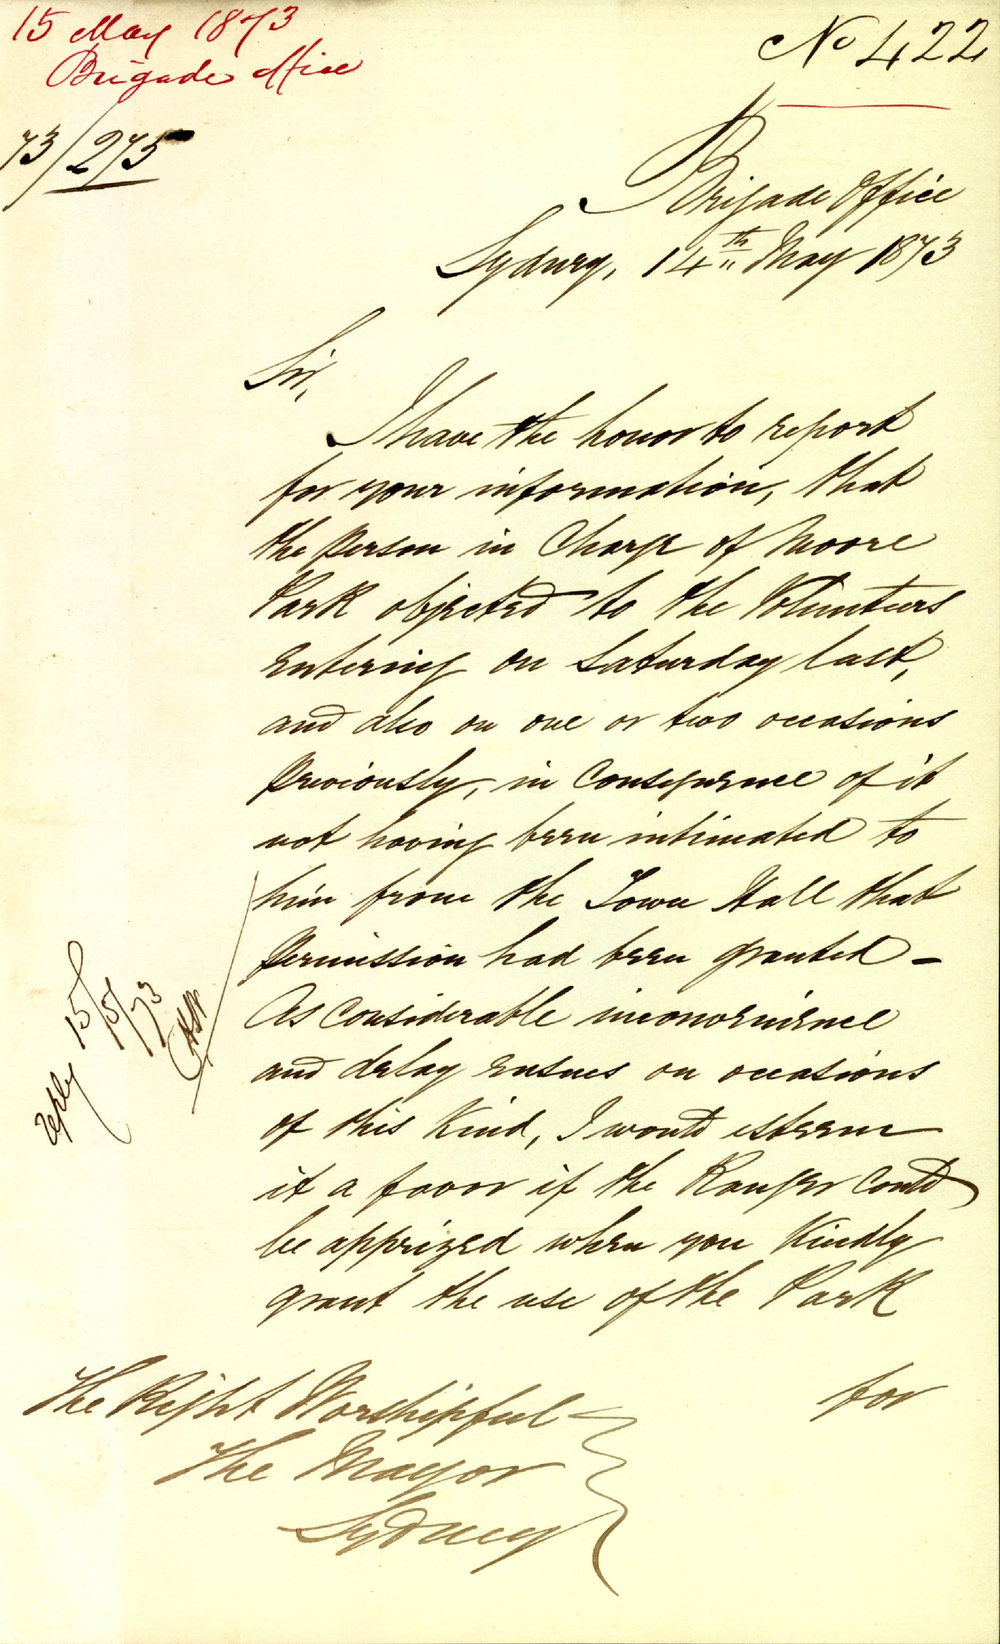 15 May 1873
Brigade Office
73/275
No 422
Brigade Office
Sydney, 14th May 1873
Sir,
I have the honor to report
for your information, that
the Person in Charge of Moore
Park objected to the Volunteers
entering on Saturday last,
and also on one or two occasions
previously, in Consequence of it
not having been intimated to
him from the Town Hall that
Permission had been granted –
As Considerable inconvenience
and delay ensues on occasions
of this Kind, I would esteem
it a favor if the Ranger Could
be apprized when you Kindly
grant the use of the Park
for
The Right Worshipful
The Mayor
Sydney
reply 15/5/73